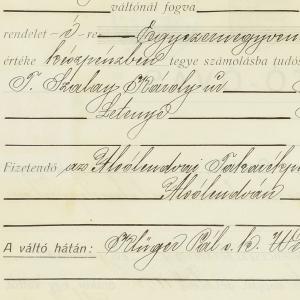 váltónál fogva
rendelet – ő – re Egyezernegyven
értéke készpénzben tegye számolásba tudós
T. Szabay Károly úr
Letenye
Fizetendő az Alsólendvai Takarékp
Alsólendván
A váltó hátán: Klüger Pál s. k. W